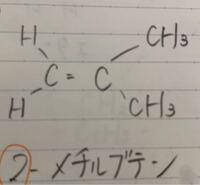 H CH3
C = C
H CH3
2-メチルブテン